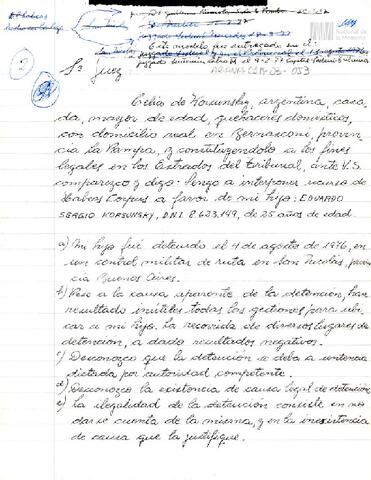 Este modelo fué entregado en el:
Sr Juez
Celia de Korsunsky, argentina, casa
da, mayor de edad, quehaceres domésticos,
con domicilio real en Bernasconi, provin
cia La Pampa, y constituyendolo a los fines
legales en los Estrados del Tribunal, ante V.S.
comparezco y digo: Vengo a interponer recurso de
Habeas Corpus a favor de mi hijo: EDUARDO
SERGIO KORSUNSKY, DNI 8.623.149, de 25 años de edad.
a) Mi hijo fué detenido el 4 de agosto de 1976, en
un control militar de ruta en San Nicolás, provin
cia Buenos Aires.
b) Pese a la causa aparente de la detención, han
resultado inútiles todas las gestiones para ubi
car a mi hijo. La recorrida de diversos lugares de
detención, a dado resultados negativos.
c) Desconozco que la detención se deba a sentencia
dictada por autoridad competente.
d) Desconozco la existencia de causa legal de detención.
e) La ilegalidad de la detención consiste en no
darse cuenta de la misma, y en la inexistencia
de causa que la justifique.